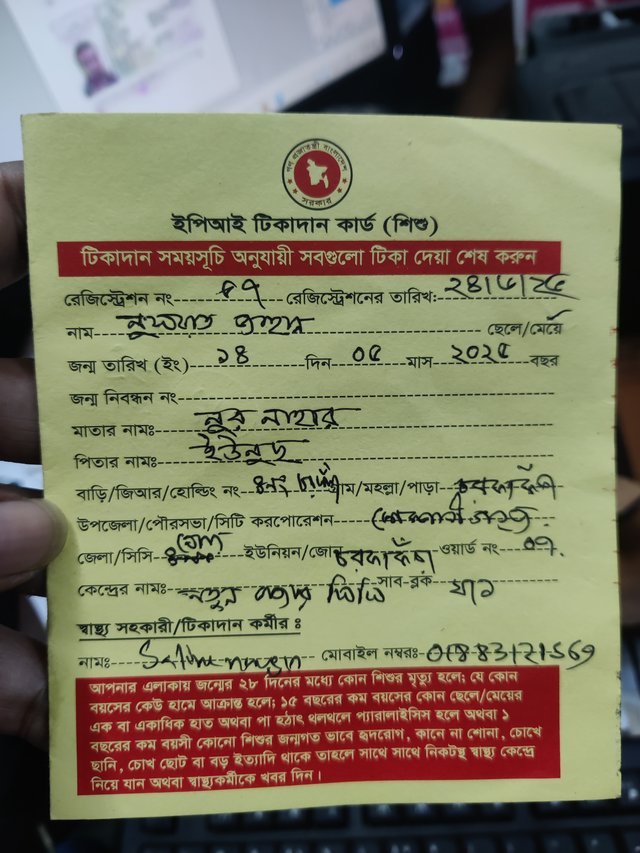 গণ প্রজাতন্ত্রী বাংলাদেশ সরকার
ইপিআই টিকাদান কার্ড (শিশু)
টিকাদান সময়সূচি অনুযায়ী সবগুলো টিকা দেয়া শেষ করুন
রেজিস্ট্রেশন নং ৮৭ রেজিস্ট্রেশনের তারিখ: ২৪/৬/২৫
নাম ছেলে/মেয়ে
জন্ম তারিখ (ইং) ১৪ দিন ০৫ মাস ২০২৫ বছর
জন্ম নিবন্ধন নং
মাতার নামঃ নুর নাহার
পিতার নামঃ
বাড়ি/জিআর/হোল্ডিং নং গ্রাম/মহল্লা/পাড়া চরকাকঁড়া
উপজেলা/পৌরসভা/সিটি করপোরেশন
জেলা/সিসি ইউনিয়ন/জোন চরকাকঁড়া ওয়ার্ড নং ০৭
কেন্দ্রের নামঃ নতুন সাব-ব্লক
স্বাস্থ্য সহকারী/টিকাদান কর্মীর ঃ
নামঃ মোবাইল নম্বরঃ 01883121569
আপনার এলাকায় জন্মের ২৮ দিনের মধ্যে কোন শিশুর মৃত্যু হলে; যে কোন
বয়সের কেউ হামে আক্রান্ত হলে; ১৫ বছরের কম বয়সের কোন ছেলে/মেয়ের
এক বা একাধিক হাত অথবা পা হঠাৎ থলথলে প্যারালাইসিস হলে অথবা ১
বছরের কম বয়সী কোনো শিশুর জন্মগত ভাবে হৃদরোগ, কানে না শোনা, চোখে
ছানি, চোখ ছোট বা বড় ইত্যাদি থাকে তাহলে সাথে সাথে নিকটস্থ স্বাস্থ্য কেন্দ্রে
নিয়ে যান অথবা স্বাস্থ্যকর্মীকে খবর দিন।